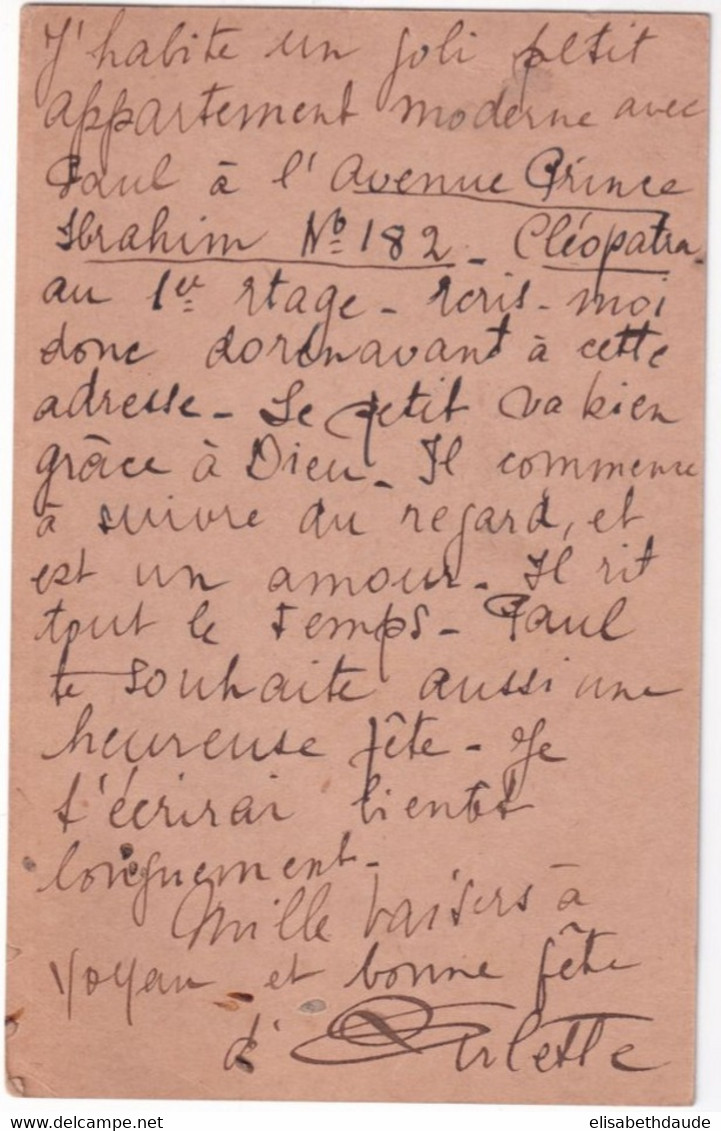 J'habite un joli petit
appartement moderne avec
Paul à l'Avenue Prince
Ibrahim Nº 182 - Cléopatra
au 1er etage - Ecris-moi
donc dorénavant à cette
adresse - Le petit va bien
grâce à Dieu - Il commence
à suivre du regard, et
est un amour - Il rit
tout le temps - Paul
te souhaite aussi une
heureuse fête - Je
t'écrirai bientôt
longuement -
Mille baisers à
et bonne fête
d'Arlette
elisabethdaude